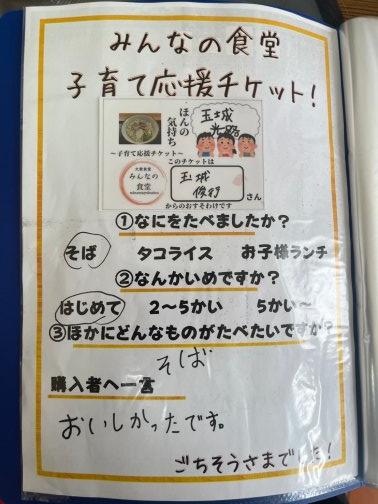 みんなの食堂
子育て応援チケット!
ほんの
気持ち
玉城
~子育て応援チケット~
このチケットは
大衆食堂
みんなの
食堂
玉城
さん
からのおすそわけです
①なにをたべましたか?
そば タコライス お子様ランチ
②なんかいめですか?
はじめて 2～5かい 5かい～
③ほかにどんなものがたべたいですか?
そば
購入者へ一言
おいしかったです。
ごちそうさまでした!